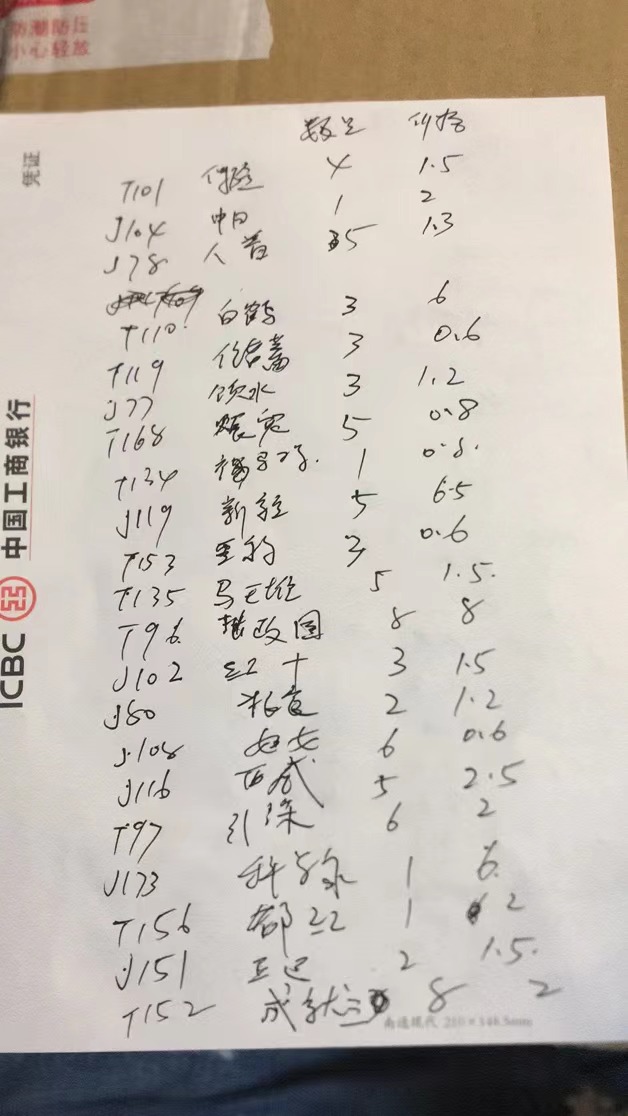 防潮防压
小心轻放
凭证
中国工商银行
ICBC
数量 价格
T101 体坛 4 1.5
J104 中日 1 2
J78 人普 5 1.3
T110 白鹤 3 6
T119 储蓄 3 0.6
J77 饮水 3 1.2
T168 赈灾 5 0.8
T134 1 0.8.
J119 新疆 5 6.5
T153 3 0.6
T135 马王堆 5 1.5.
T96 拙政园 8 8
J102 红十 3 1.5
J80 2 1.2
J108 妇女 6 0.6
J116 西藏 5 2.5
T97 引滦 6 2
J173 科学家 1 6.
T156 都江 1 2
J151 亚运 2 1.5.
T152 成就三 8 2
210×148.5mm